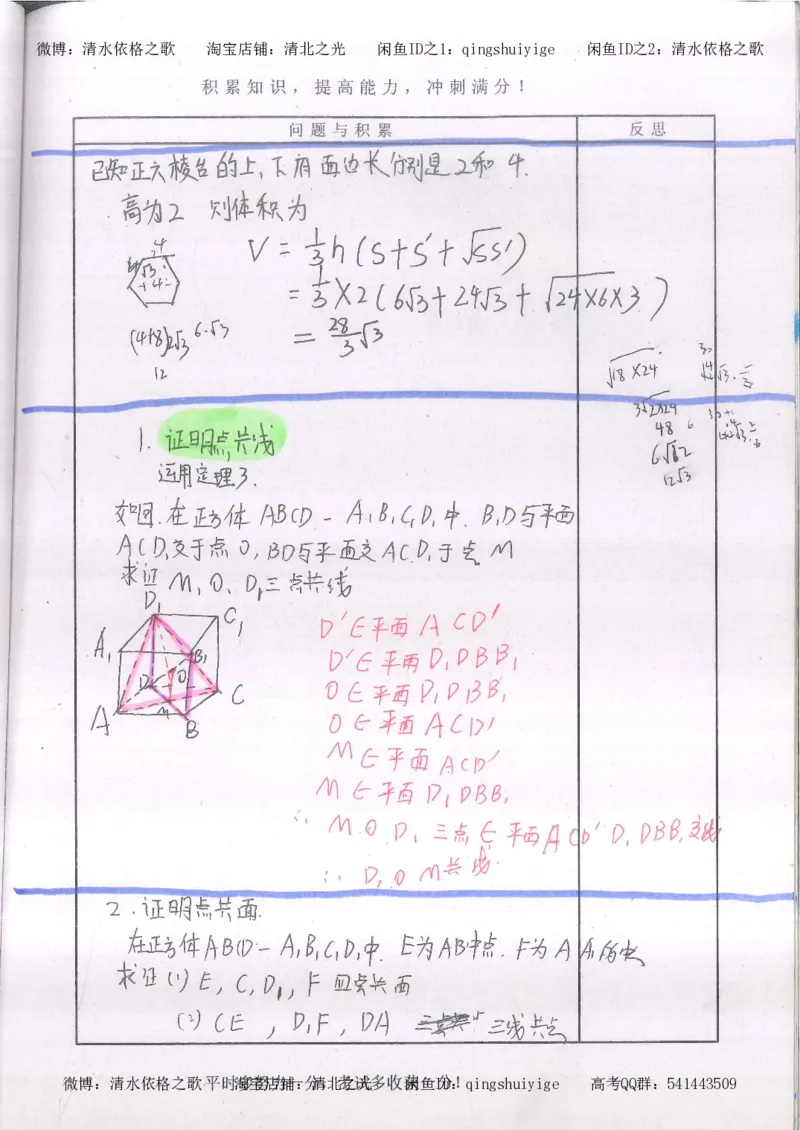 微博：清水依格之歌 淘宝店铺：清北之光 闲鱼ID之1：qingshuiyige 闲鱼ID之2：清水依格之歌
积累知识，提高能力，冲刺满分！
问题与积累 反思
已知正六棱台的上,下底面边长分别是2和4.
高为2 则体积为
V = 1/3 h (S+S'+√SS')
= 1/3 ×2 (6√3+24√3+√24×6×3)
= 28/3 √3
(4+8)2√3 6·√3
12
√18×24
3√2×24
48 6
12√3
1. 证明点共线
运用定理3.
如图.在正方体ABCD-A₁B₁C₁D₁中.B₁D与平面
ACD₁交于点O,BD与平面交ACD₁于点M
求证 M,O、D₁三点共线
D₁ C₁
A₁ B₁
D O C
A M B
D'∈平面ACD'
D'∈平面D₁DBB₁
O∈平面D₁DBB₁
O∈平面ACD'
M∈平面ACD'
M∈平面D₁DBB₁
∴ M.O D₁三点∈平面ACD' D₁DBB₁交线
∴ D₁O M共线
2.证明点共面.
在正方体ABCD-A₁B₁C₁D₁中.E为AB中点.F为AA₁
求证(1)E,C,D₁,F四点共面
(2)CE,D₁F,DA 三线共点
微博：清水依格之歌 淘宝店铺：清北之光 闲鱼ID：qingshuiyige 高考QQ群：541443509